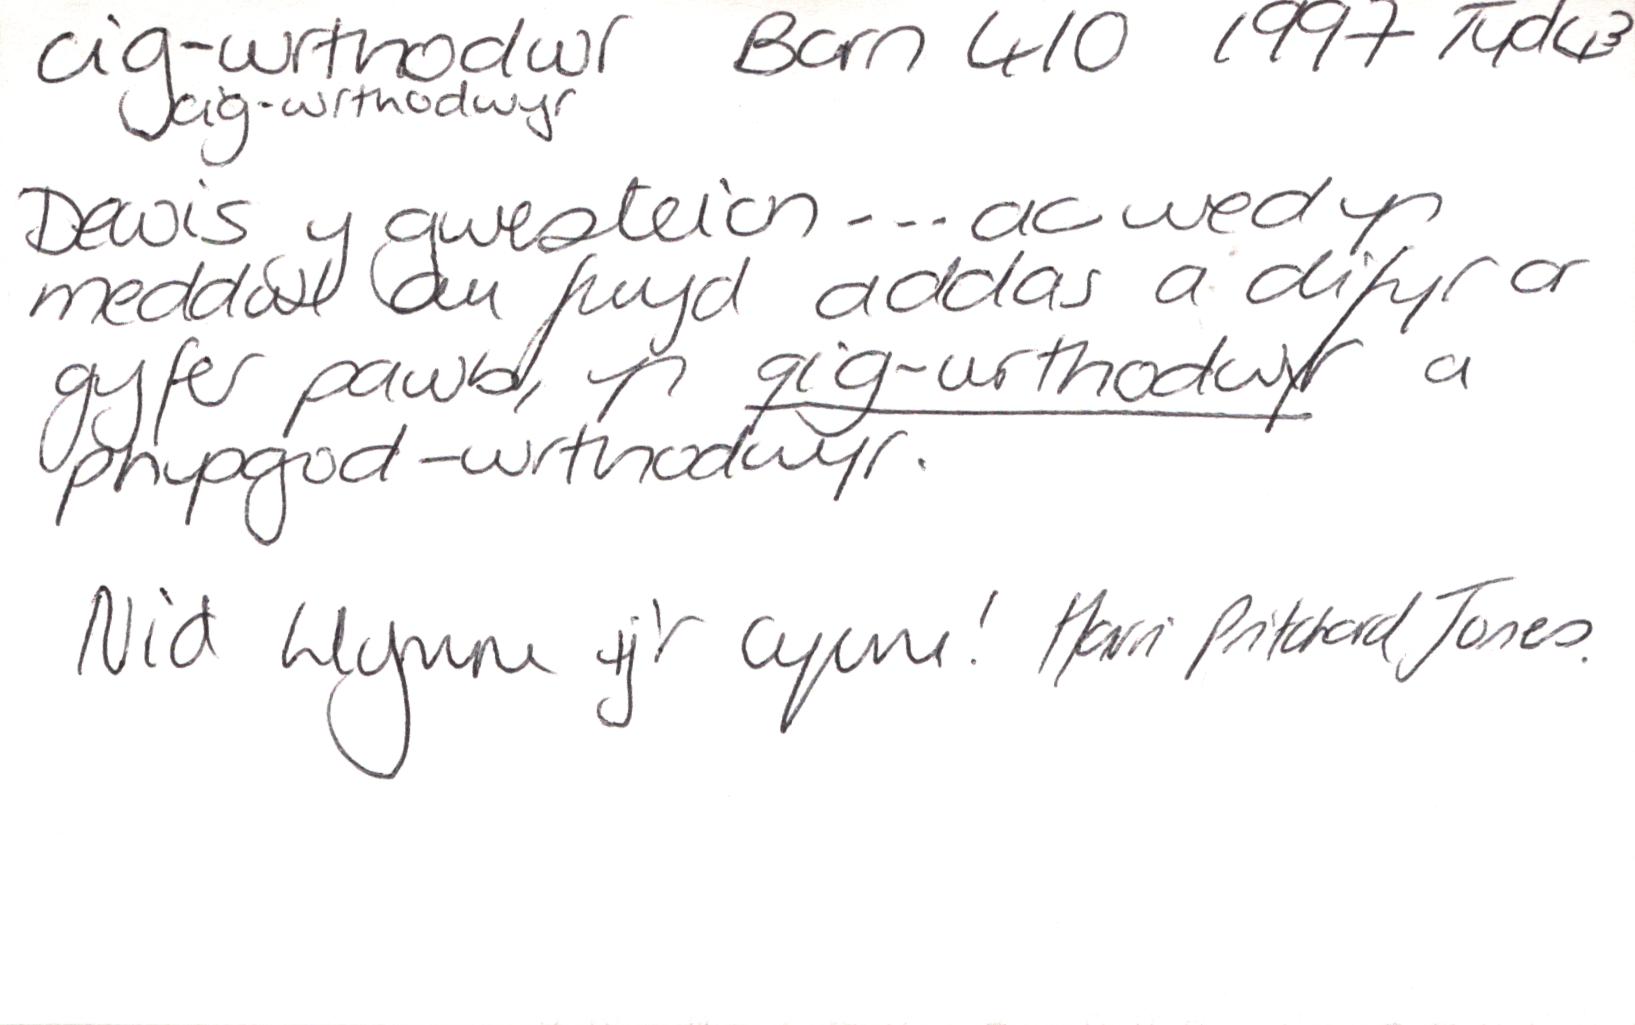 cig-wrthodwr Barn 410 1997 Tud 43
cig-wrthodwyr
Dewis y gwesteion --- ac wedyn
meddwl am fwyd addas a difyr ar
gyfer pawb, yn gig-wrthodwyr a
physgod-wrthodwyr.
Nid Wynne yj'r cyfnne! Harri Pritchard Jones.